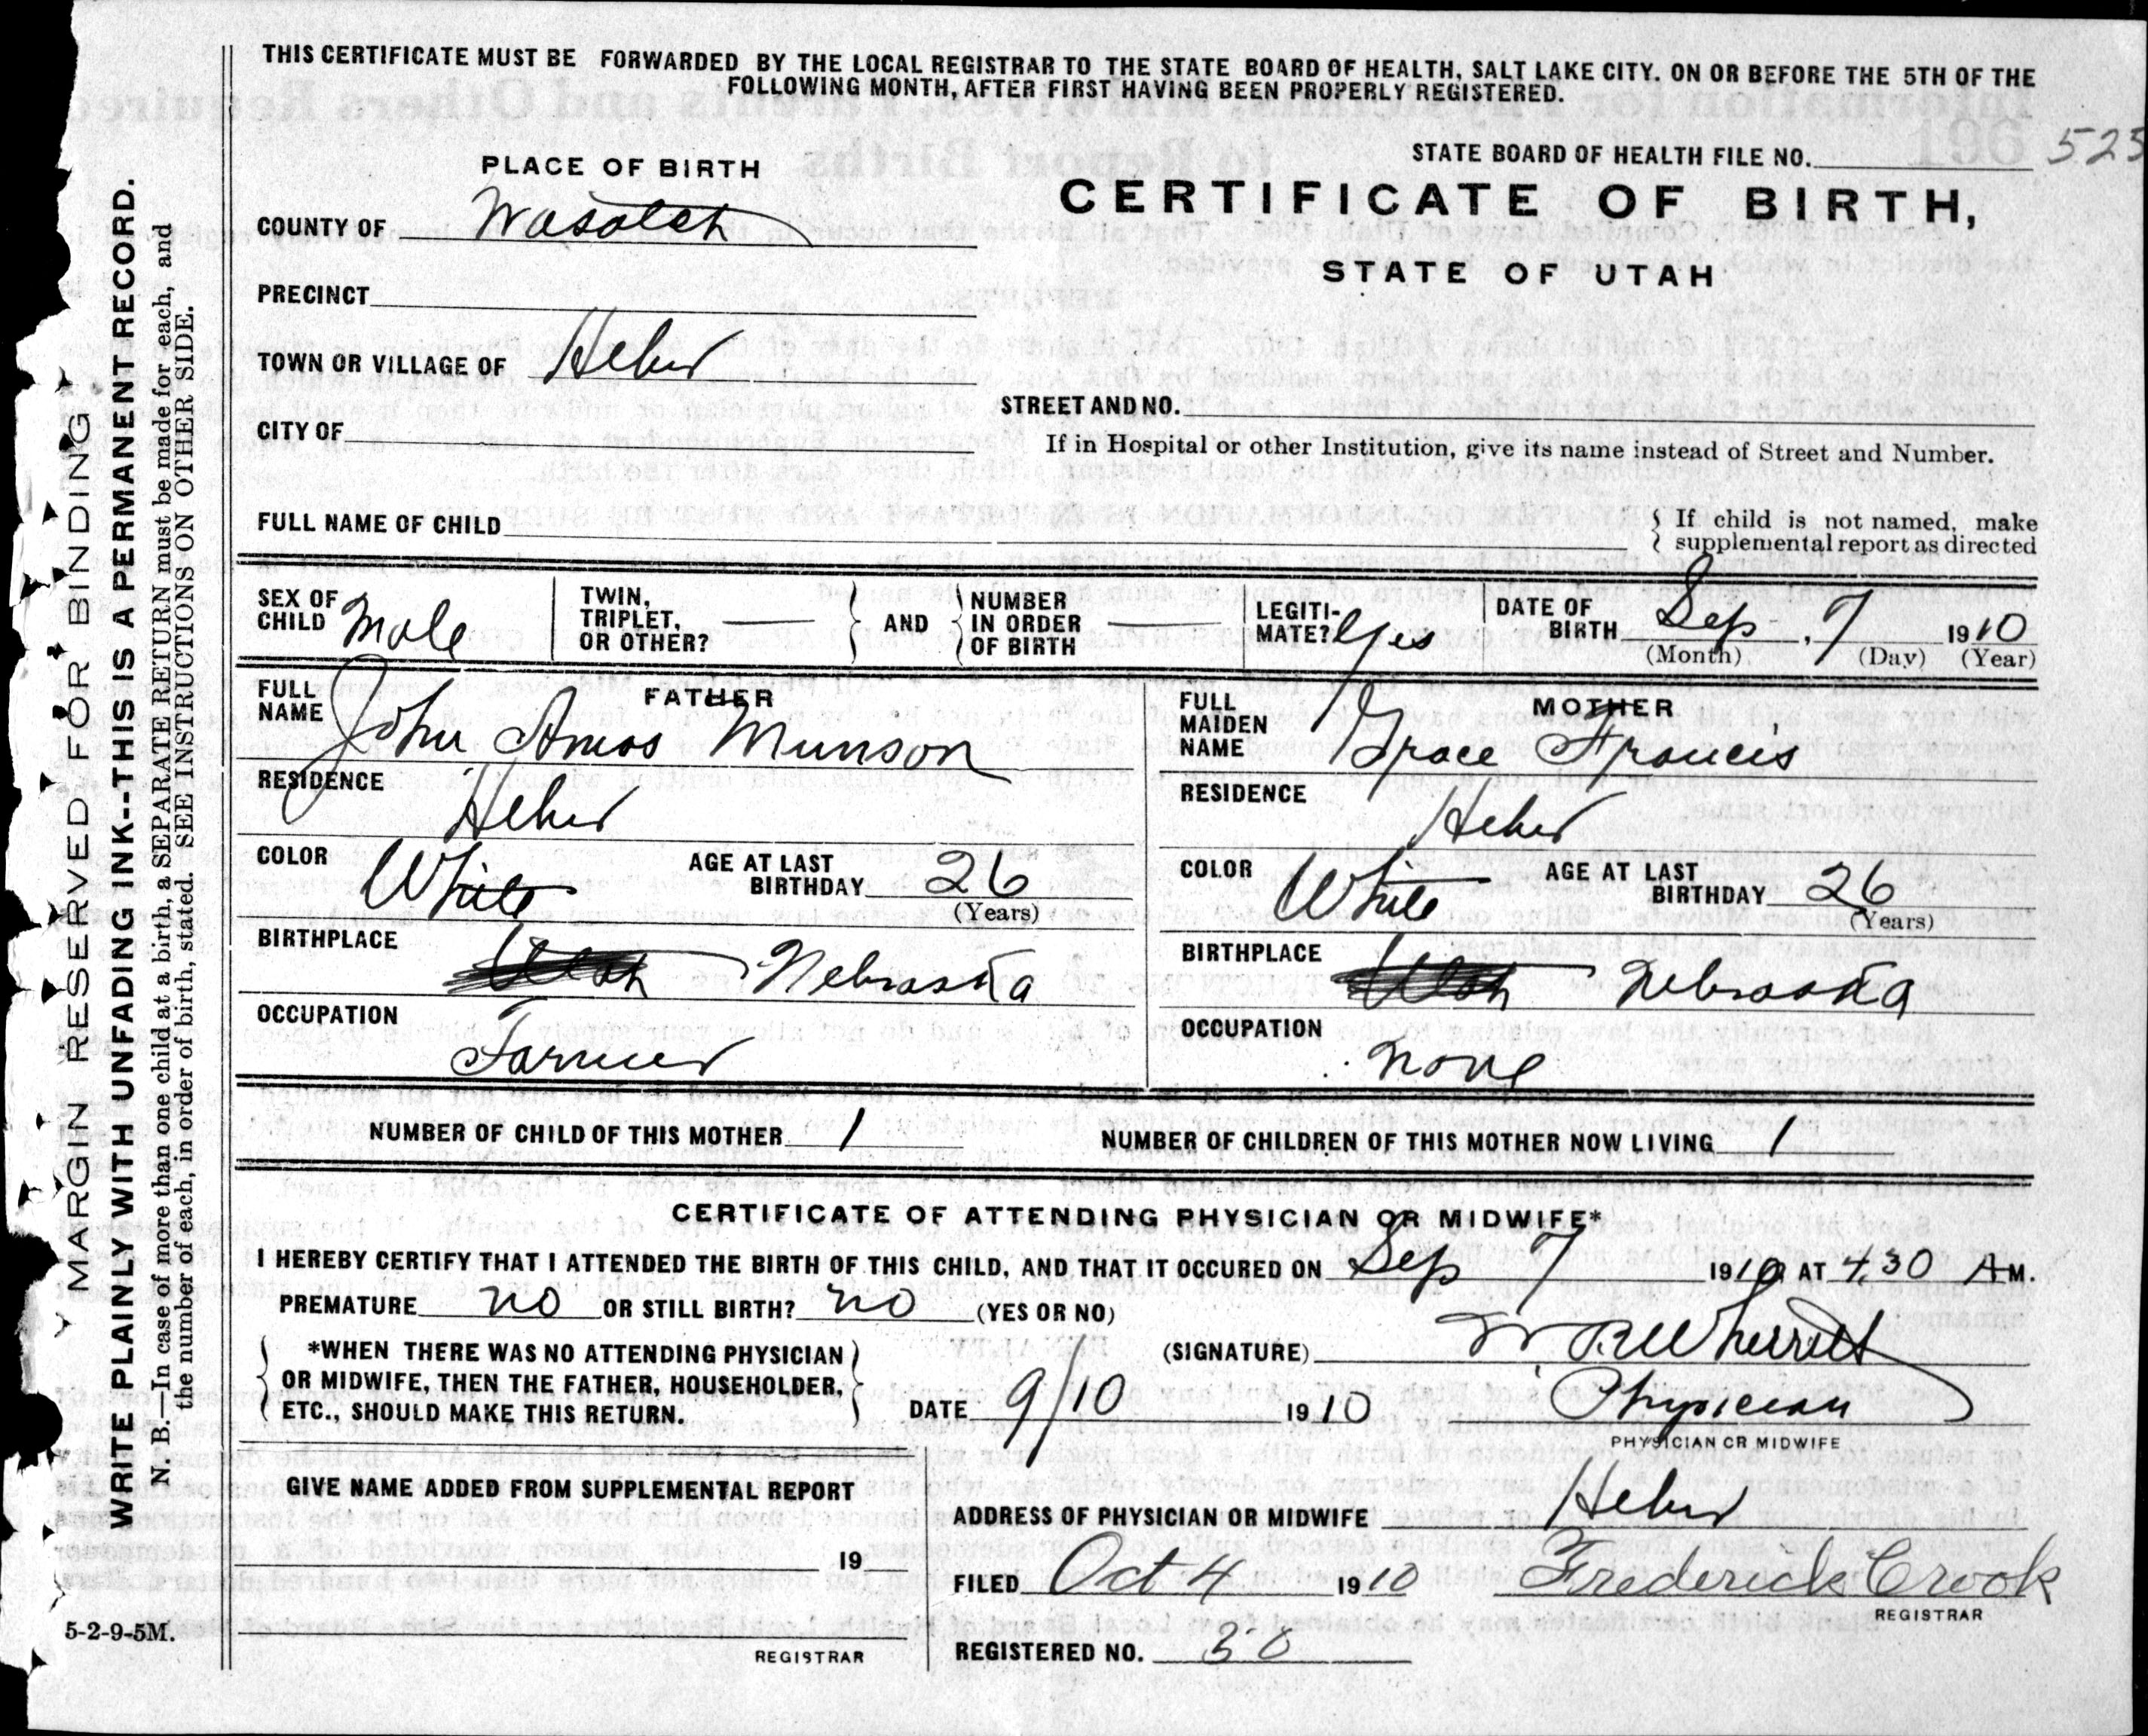 THIS CERTIFICATE MUST BE FORWARDED BY THE LOCAL REGISTRAR TO THE STATE BOARD OF HEALTH, SALT LAKE CITY. ON OR BEFORE THE 5TH OF THE
FOLLOWING MONTH, AFTER FIRST HAVING BEEN PROPERLY REGISTERED.
523
STATE BOARD OF HEALTH FILE NO.
PLACE OF BIRTH
CERTIFICATE OF BIRTH,
STATE OF UTAH
COUNTY OF Wasatch
PRECINCT
TOWN OR VILLAGE OF Heber
STREET AND NO.
CITY OF
If in Hospital or other Institution, give its name instead of Street and Number.
FULL NAME OF CHILD
{ If child is not named, make
supplemental report as directed
SEX OF CHILD Male
TWIN, TRIPLET, OR OTHER? —
AND
NUMBER IN ORDER OF BIRTH —
LEGITI-MATE? Yes
DATE OF BIRTH Sep. 7 1910
(Month) (Day) (Year)
FATHER
FULL NAME John Amos Munson
RESIDENCE Heber
COLOR White AGE AT LAST BIRTHDAY 26
(Years)
BIRTHPLACE Utah Nebraska
OCCUPATION Farmer
MOTHER
FULL MAIDEN NAME Grace Francis
RESIDENCE Heber
COLOR White AGE AT LAST BIRTHDAY 26
(Years)
BIRTHPLACE Utah Nebraska
OCCUPATION None
NUMBER OF CHILD OF THIS MOTHER 1 NUMBER OF CHILDREN OF THIS MOTHER NOW LIVING 1
CERTIFICATE OF ATTENDING PHYSICIAN OR MIDWIFE*
I HEREBY CERTIFY THAT I ATTENDED THE BIRTH OF THIS CHILD, AND THAT IT OCCURED ON Sep 7 1910 AT 4.30 A M.
PREMATURE no OR STILL BIRTH? no (YES OR NO)
*WHEN THERE WAS NO ATTENDING PHYSICIAN
OR MIDWIFE, THEN THE FATHER, HOUSEHOLDER,
ETC., SHOULD MAKE THIS RETURN.
(SIGNATURE) W R Wherritt
DATE 9/10 1910 Physician
PHYSICIAN OR MIDWIFE
GIVE NAME ADDED FROM SUPPLEMENTAL REPORT
19
REGISTRAR
ADDRESS OF PHYSICIAN OR MIDWIFE Heber
FILED Oct 4 1910 Frederick Crook
REGISTRAR
REGISTERED NO. 30
5-2-9-5M.
MARGIN RESERVED FOR BINDING
WRITE PLAINLY WITH UNFADING INK--THIS IS A PERMANENT RECORD.
N. B.—In case of more than one child at a birth, a SEPARATE RETURN must be made for each, and
the number of each, in order of birth, stated. SEE INSTRUCTIONS ON OTHER SIDE.